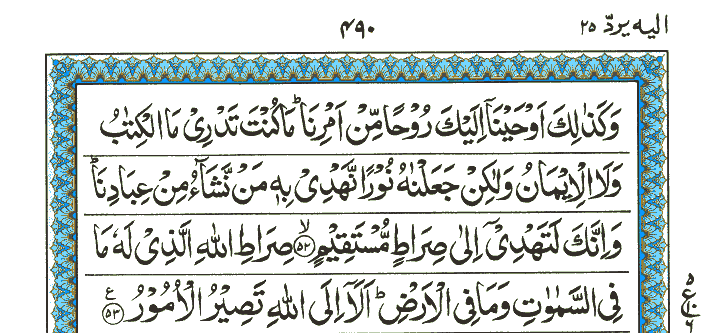 الیه یردّ ۲۵
۴۹۰
وَكَذٰلِكَ اَوْحَيْنَاۤ اِلَيْكَ رُوْحًا مِّنْ اَمْرِنَا ؕ مَا كُنْتَ تَدْرِىْ مَا الْكِتٰبُ
وَلَا الْاِيْمَانُ وَلٰكِنْ جَعَلْنٰهُ نُوْرًا نَّهْدِىْ بِهٖ مَنْ نَّشَآءُ مِنْ عِبَادِنَا ؕ
وَاِنَّكَ لَتَهْدِىْۤ اِلٰى صِرَاطٍ مُّسْتَقِيْمٍ ۙ‏﴿۵۲﴾ صِرَاطِ اللّٰهِ الَّذِىْ لَهٗ مَا
فِى السَّمٰوٰتِ وَمَا فِى الْاَرْضِ ؕ اَلَاۤ اِلَى اللّٰهِ تَصِيْرُ الْاُمُوْرُ ﴿۵۳﴾ ع
۵
ع
۱۰
۶